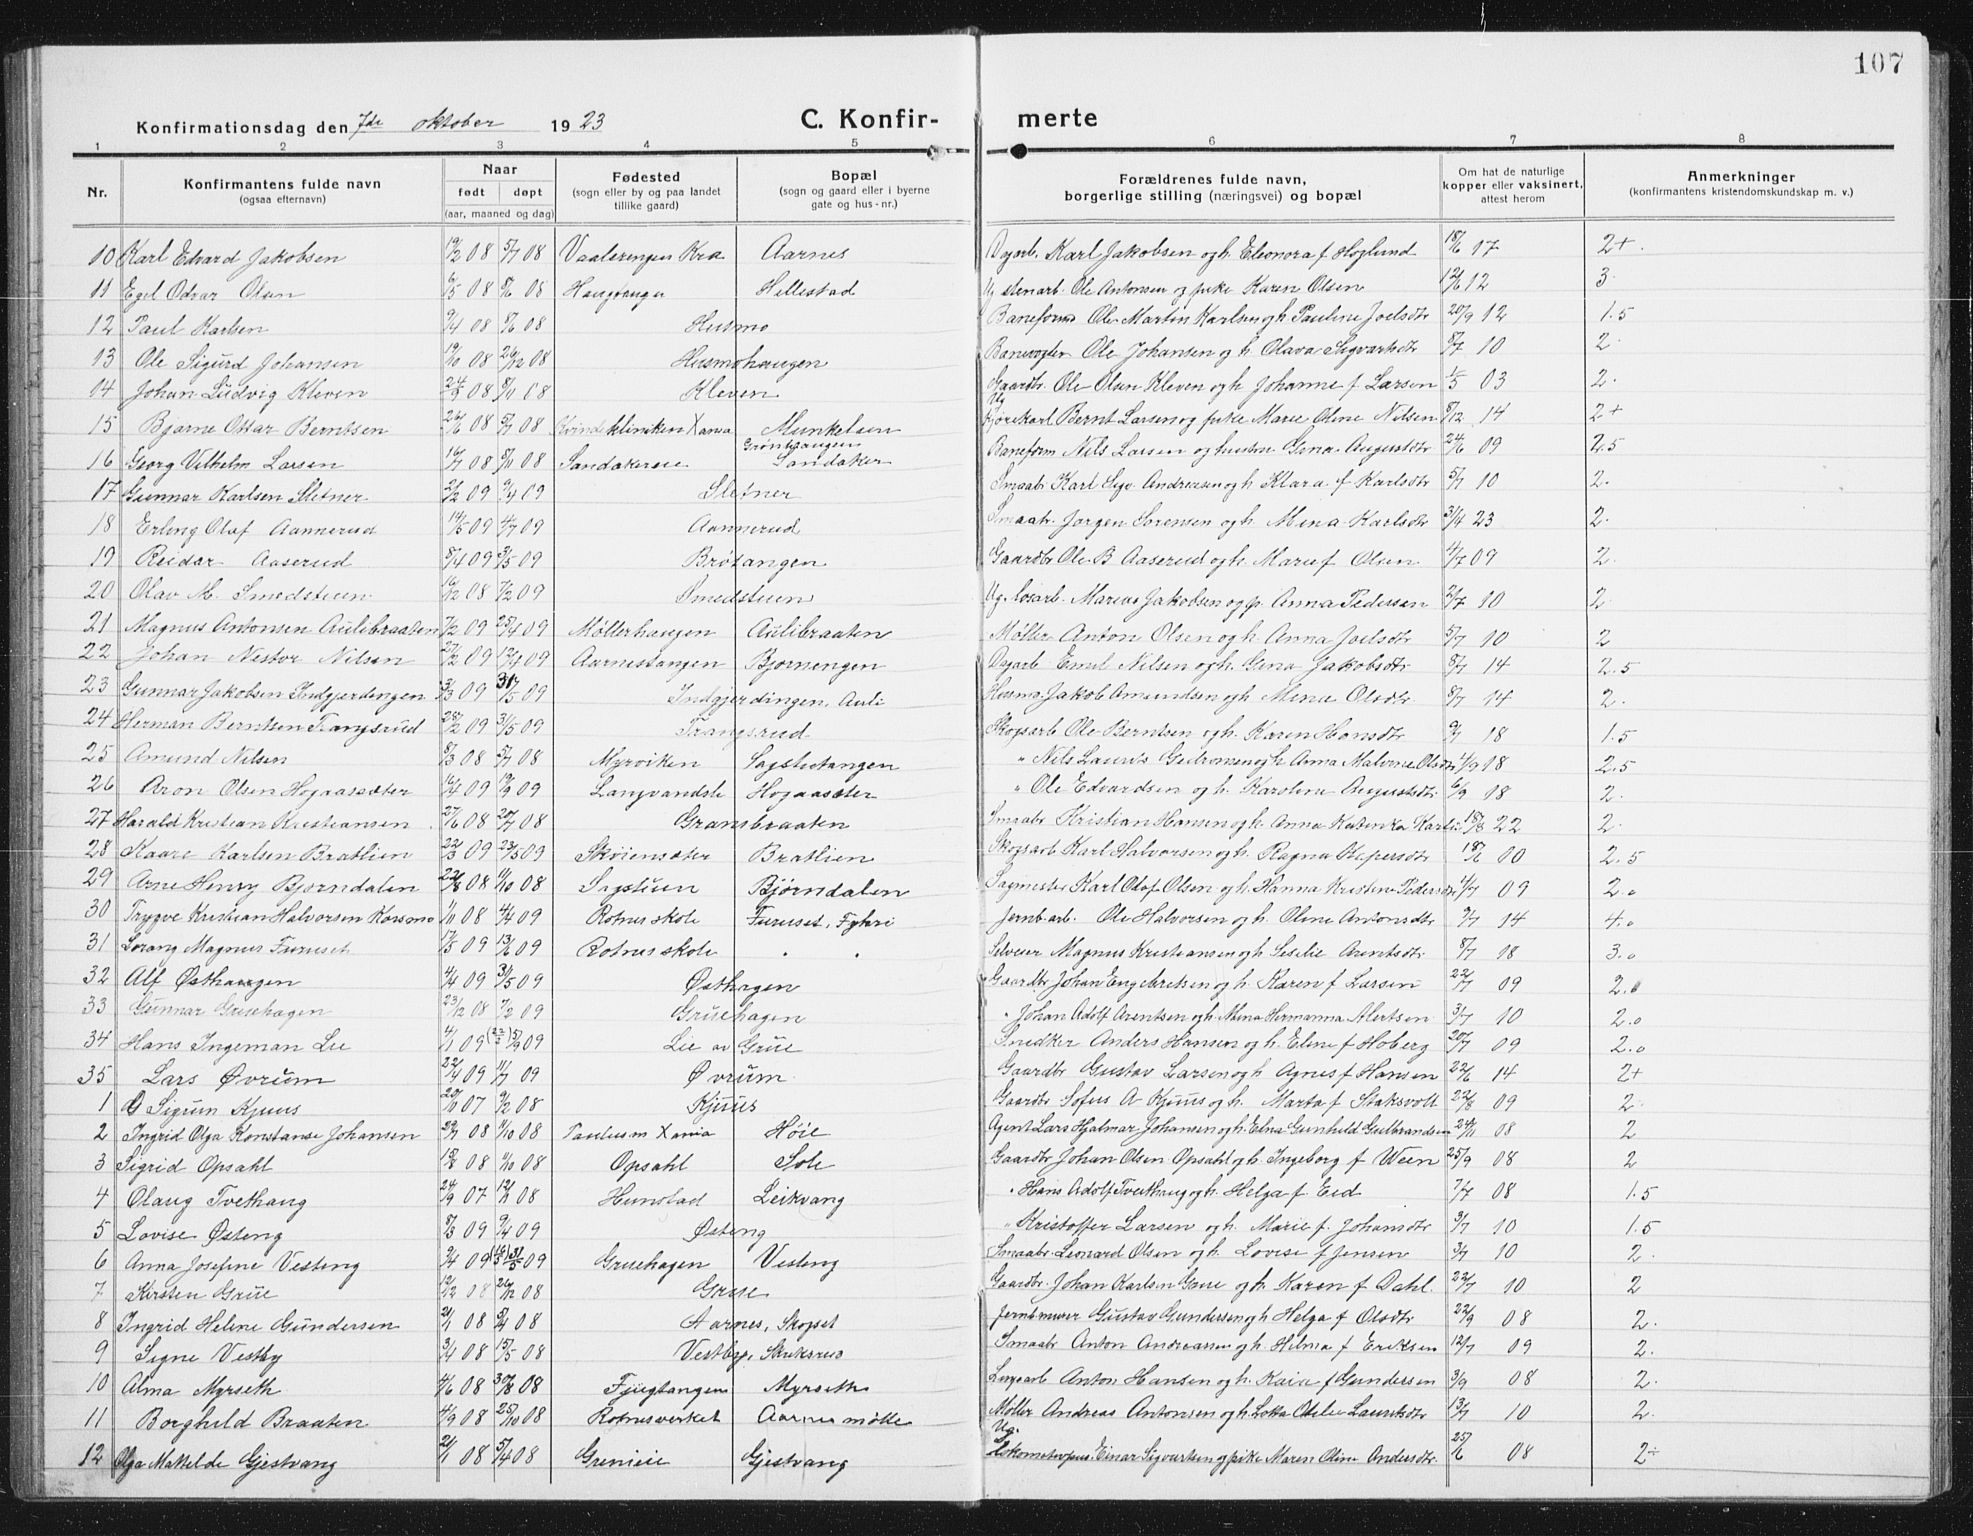 107
Konfirmationsdag den 7de oktober 1923 C. Konfirmerte
1 2 3 4 5 6 7 8
Nr. Konfirmantens fulde navn (ogsaa efternavn) Naar født døpt (aar, maaned og dag) Fødested (sogn eller by og paa landet tillike gaard) Bopæl (sogn og gaard eller i byerne gate og hus-nr.) Forældrenes fulde navn, borgerlige stilling (næringsvei) og bopæl Om hat de naturlige kopper eller vaksinert, attest herom Anmerkninger (konfirmantens kristendomskundskap m. v.)
10 Karl Edvard Jakobsen 19/2 08 5/7 08 Vaalerengen Kra Aarnes Dagarb. Karl Jakobsen og h. Eleonora f Hoglund 18/6 17 2+.
11 Egil Odvar Olsen 6/5 08 8/6 08 Haugtangen Hellestad Ug stenarb. Ole Antonsen og pike Karen Olsen 12/6 12 3
12 Paul Karlsen 9/4 08 8/6 08 Husmo Baneform Ole Martin Karlsen og h Pauline Joelsdtr 20/9 12 1.5
13 Ole Sigurd Johansen 19/10 08 26/12 08 Husmohaugen Banevogter Ole Johansen og h. Olava Sigvartsdtr 8/7 10 2.
14 Johan Ludvig Kleven 24/8 08 8/10 08 Kleven Gaardbr. Ole Olsen Kleven og h. Johanne f. Larsen 1/5 03 2.
15 Bjarne Ottar Berntsen 26/6 08 5/7 08 Kvindeklinikken Xania Munkelsen Ug Kjørekarl Bernt Larsen og pike Marie Oline Nilsen 8/12 14 2+
16 Georg Vilhelm Larsen 16/7 08 8/10 08 Sandakereie Grønhaugen Sandaker Baneform Nils Larsen og hustru Gina Augustdtr 24/6 09 2.5
17 Gunnar Karlsen Sletner 2/2 09 9/4 09 Sletner Smaabr. Karl Sigv. Andreasen og h Klara f Karlsdtr 5/7 10 2.
18 Erling Olaf Aannerud 14/5 09 4/7 09 Aannerud Smaabr. Jørgen Sørensen og h. Mina Karlsdtr 3/4 23 2.
19 Reidar Aaserud 8/4 09 3/5 09 Brøtangen Gaardbr Ole B Aaserud og h. Marie f Olsen 4/7 09 2.
20 Olav M. Smedstuen 16/12 08 7/2 09 Smedstuen Ug. løsarb. Marius Jakobsen og p. Anna Pedersen 2/7 10 2.
21 Magnus Antonsen Aulibraaten 7/2 09 25/4 09 Møllerhaugen Aulibraaten Møller Anton Olsen og h. Anna Joelsdtr 5/7 10 2
22 Johan Nestor Nilsen 27/2 09 12/4 09 Aarnestangen Bjørnengen Dagarb Emil Nilsen og h. Gina Jakobsdtr 8/7 14 2.5
23 Gunnar Jakobsen Indgjerdengen 3/3 09 31/5 09 Indgjerdingen, Auli Husm. Jakob Amundsen og h Mina Olsdtr. 8/7 14 2.
24 Herman Berntsen Frangsrud 28/2 09 31/5 09 Frangsrud Skogsarb Ole Berntsen og h. Karen Hansdtr 9/7 18 1.5
25 Amund Nilsen 8/3 08 5/7 08 Myrviken Sagstutangen " Nils Laurits Gudmunsen og h. Anna Malvine Olsdtr 1/9 18 2.5
26 Aron Olsen Hogaasæter 16/4 09 19/9 09 Langvandslt Hogaasæter " Ole Edvardsen og h. Karoline Augustsdtr. 6/9 18 2.
27 Harald Kristian Kristiansen 27/6 08 20/7 08 Gransbraaten Smaabr Kristian Hansen og h. Anna Katinka Karls 18/8 22 2.
28 Kaare Karlsen Bratlien 22/3 09 23/5 09 Skøiensæter Bratlien Skogsarb Karl Halvorsen og h. Ragna Kspersdtr 18/6 00 2.5
29 Arne Henry Bjørndalen 22/8 08 11/10 08 Sagstuen Bjørndalen Sagmester Karl Olaf Olsen og h. Hanna Kristine Pedersdtr 1/7 09 2.0
30 Trygve Kristian Halvorsen Korsmo 1/10 08 4/4 09 Rotnes skole Furuset, Fyhri Jernb.arb. Ole Halvorsen og h. Oline Antonsdtr 9/7 14 4.0
31 Lorang Magnus Furuset 17/5 09 13/6 09 Rotnes skole . . Selveier Magnus Kristiansen og h Sesilie Arentsdtr 8/7 18 3.0
32 Alf Østhagen 4/4 09 31/5 09 Østhagen Gaardbr Johan Engebretsen og h. Karen f Larsen 22/7 09 2.0
33 Gunnar Gruehagen 23/12 08 7/2 09 Gruehagen " Johan Adolf Arentsen og h. Mina Hermanna Alertsen 3/7 10 2.0
34 Hans Ingeman Lie 4/1 09 5/9 09 Lie av Grue Snedker Anders Hansen og h. Eline f Hoberg 20/7 09 2.0
35 Lars Øvrum 22/4 09 11/7 09 Øvrum Gaardbr Gustav Larsen og h Agnes f Hansen 22/6 14 2+
1 Sigrun Kjuus 20/10 07 9/2 08 Kjuus Gaardbr Sofus A Kjuus og h. Marta f Staksvoll 22/8 09 2.
2 Ingrid Olga Konstanse Johansen 29/7 08 11/10 08 Paulus m Xania Høie Agent Lars Hjalmar Johansen og h. Elna Gunhild Gulbrandsen 24/11 08 2
3 Sigrid Opsahl 15/8 08 11/10 08 Opsahl Sole Gaardbr Johan Olsen Opsahl og h. Ingeborg f Ween 25/9 08 2
4 Olaug Tvethaug 24/9 07 12/1 08 Hunstad Leikvang " Hans Adolf Tveithaug og h. Helga f. Eid 7/7 08 1.5
5 Lovise Østeng 8/3 09 9/4 09 Østeng " Kristoffer Larsen og h. Marie f. Johansdtr 3/7 10 1.5
6 Anna Josefine Vesteng 2/4 09 31/5 09 Gruehagen Vesteng Smaabr. Leonard Olsen og h. Lovise f Jensen 3/7 10 2.
7 Kirsten Grue 12/12 08 26/12 08 Grue Gaardbr. Johan Karlsen Grue og h. Karen f Dahl. 22/7 10 2
8 Ingrid Helene Gundersen 21/1 08 5/4 08 Aarnes, Skogset Jernbmurer Gustav Gundersen og h Helga f Olsdtr 22/9 08 2.
9 Signe Vestby 3/4 08 15/5 08 Vestby, Skuksrud Smaabr Anton Andreassen og h. Helma f. Eriksen 12/7 09 2.
10 Alma Myrseth 4/6 08 30/8 08 Fjugtangen Myrseth Løsarb Anton Hansen og h. Kaia f Gundersen 3/9 08 2.
11 Borghild Braaten 4/9 08 25/10 08 Rotnesverket Aarnes mølle Møller Andreas Antonsen og h. Lotta Odelie Lauritsdtr 13/7 10 2.
12 Olga Mattelde Gjestvang 21/1 08 5/4 08 Grenieie Gjestvang Ug. Lokomotivpus. Einar Sigvartsen og pike Maren Oline Andersdtr. 25/6 08 2÷